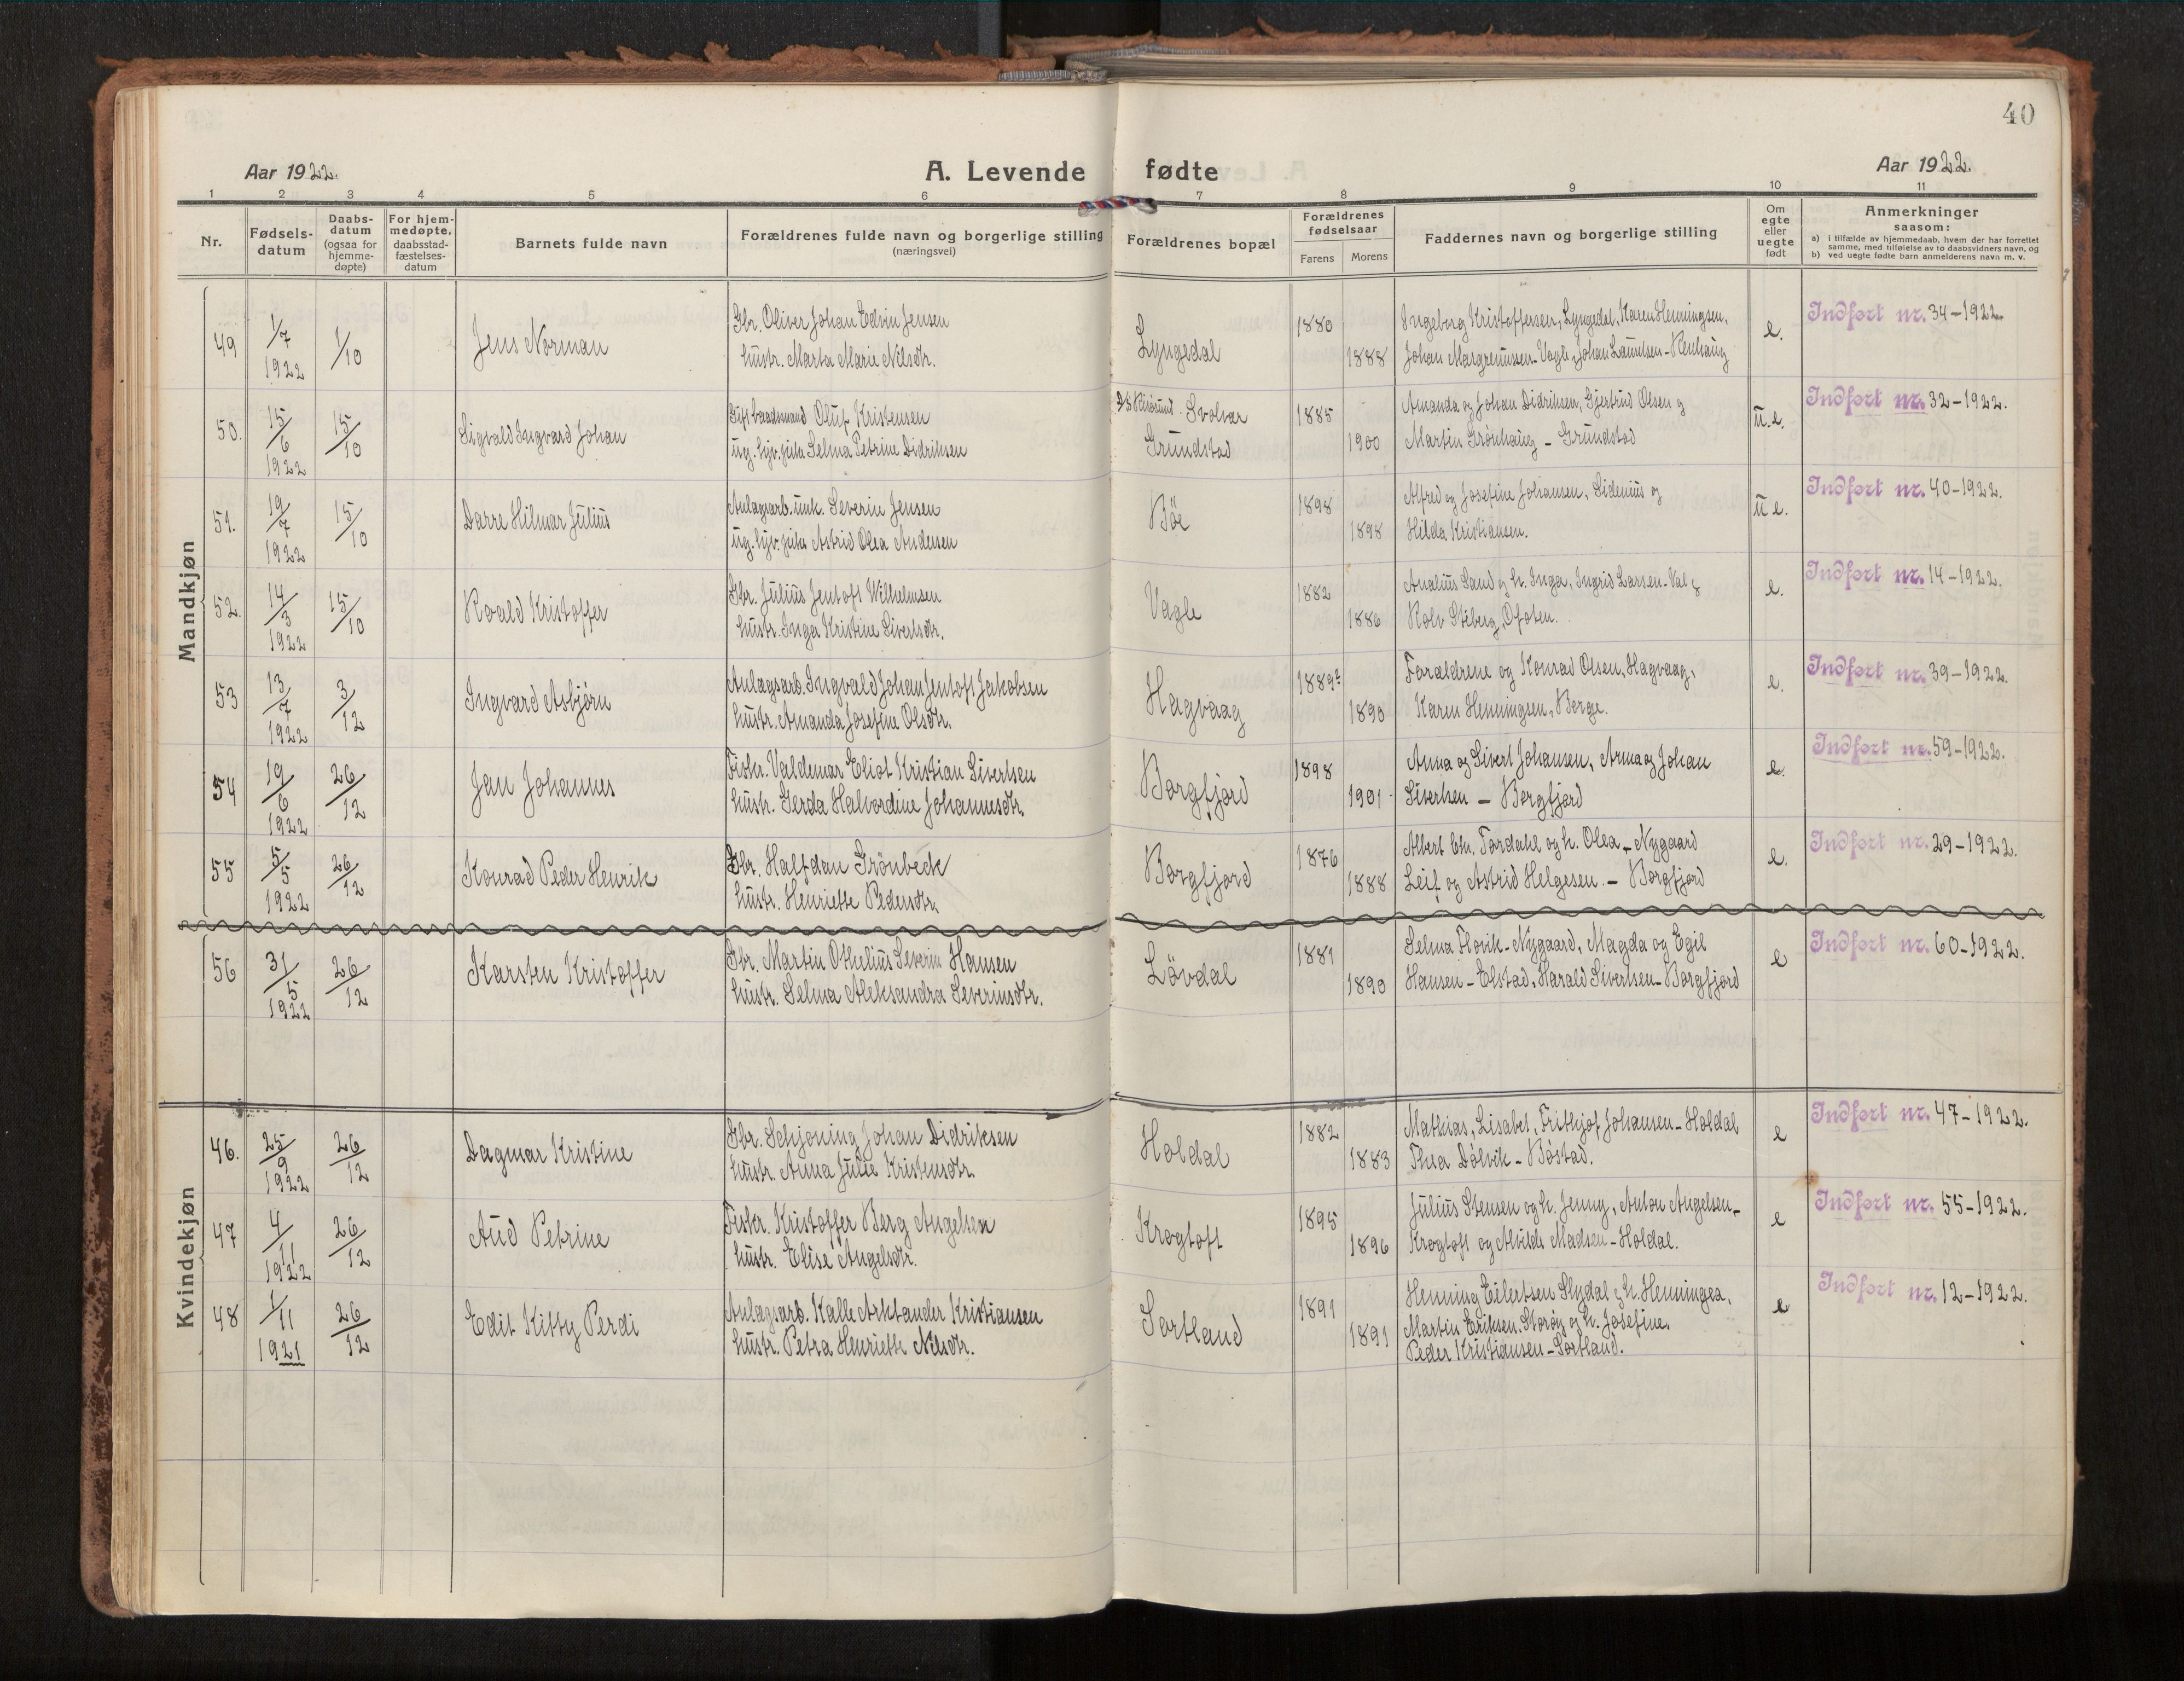 40
Aar 1922.
A. Levende fødte
Aar 1922.
1 2 3 4 5 6 7 8 9 10 11
Nr.
Fødsels-
datum
Daabs-
datum
(ogsaa for
hjemme-
døpte)
For hjem-
medøpte,
daabsstad-
fæstelses-
datum
Barnets fulde navn
Forældrenes fulde navn og borgerlige stilling
(næringsvei)
Forældrenes bopæl
Forældrenes
fødselsaar
Farens Morens
Faddernes navn og borgerlige stilling
Om
egte
eller
uegte
født
Anmerkninger
saasom:
a) i tilfælde av hjemmedaab, hvem der har forrettet
samme, med tilføielse av to daabsvidners navn, og
b) ved uegte fødte barn anmelderens navn m. v.
Mandkjøn
49 1/7 1922 1/10 Jens Norman
Gbr. Oliver Johan Edvin Jensen
hustr. Marta Marie Nilsdtr.
Lyngedal 1880 1888
Ingeborg Kristoffersen, Lyngedal, Karen Henningsen,
Johan Margrenussen-Vagle, Johan Lauritsen-Renhaug
e. Indført nr. 34-1922.
50. 15/6 1922 15/10 Sigvald Ingvard Johan
Gift baadsmand Oluf Kristensen
ug. hjv. Selma Petrine Didriksen
Svolvær
Grundstad 1885 1900
Amanda og Johan Didriksen, Gjertrud Olsen og
Martin Grönhaug - Grundstad
u.e. Indført nr. 32-1922.
51. 19/7 1922 15/10 Darre Hilmar Julius
Anlagsarb. unk. Severin Jensen
ug. hjv. Astrid Olea Andersen
Böe 1898 1898
Alfred og Josefine Johansen, Sidenius og
Hilda Kristiansen.
u.e. Indført nr. 40-1922.
52. 14/3 1922 15/10 Roald Kristoffer
Gbr. Julius Jentoft Wilhelmsen
hustr. Inga Kristine Sivertsdtr.
Vagle 1882 1886
Analius Sand og h. Inga, Ingrid Larsen-Val og
Rolv Stiberg, Ofoten.
e. Indført nr. 14-1922.
53 13/7 1922 3/12 Ingvard Asbjørn
Anlagsarb. Ingvald Johan Jentoft Jakobsen
hustr. Amanda Josefine Olsdtr.
Hagvaag 1889 1890
Forældrene og Konrad Olsen, Hagvaag,
Karen Henningsen, Berge.
e. Indført nr. 39-1922.
54 19/6 1922 26/12 Jan Johannes
Fisker. Valdemar Eliot Kristian Sivertsen
hustr. Gerda Halvordine Johannesdtr.
Borgfjord 1898 1901
Anna og Sivert Johansen, Arna og Johan
Sivertsen - Borgfjord
e. Indført nr. 59-1922.
55 5/5 1922 26/12 Konrad Peder Henrik
Gbr. Halfdan Grönbeck
hustr. Henriette Pedersdtr.
Borgfjord 1876 1888
Albert Chr. Fordahl og h. Olea - Nygaard
Leif og Astrid Helgesen. - Borgfjord
e. Indført nr. 29-1922.
56 31/5 1922 26/12 Karsten Kristoffer
Gbr. Martin Othelius Severin Hansen
hustr. Selma Aleksandra Severinsdtr.
Lövdal 1881 1890
Selma Flovik-Nygaard, Magda og Egil
Hansen-Elstad, Harald Sivertsen-Borgfjord
e Indført nr. 60-1922.
Kvindekjøn
46. 25/9 1922 26/12 Dagmar Kristine
Gbr. Schjöning Johan Didriksen
hustr. Anna Julie Kristensdtr.
Holdal 1882 1883
Mathias, Lisabet, Frithjof Johansen-Holdal
Thea Dölvik - Böstad.
e Indført nr. 47-1922.
47 4/11 1922 26/12 Aud Petrine
Fiskr. Kristoffer Berg Angelsen
hustr. Elise Angelsdtr.
Krogtoft 1895 1896
Julius Stensen og h. Jenny, Anton Angelsen-
Krogtoft og Alvilde Madsen-Holdal.
e Indført nr. 55-1922.
48 1/11 1921 26/12 Edit Kitty Perdi
Anlagsarb. Kalle Arktander Kristiansen
hustr. Petra Henriette Nilsdtr.
Sortland 1891 1891
Henning Eilertsen Slydal og h. Henningea,
Martin Eriksen, Storöy og h. Josefine,
Peder Kristiansen-Sortland.
e Indført nr. 12-1922.